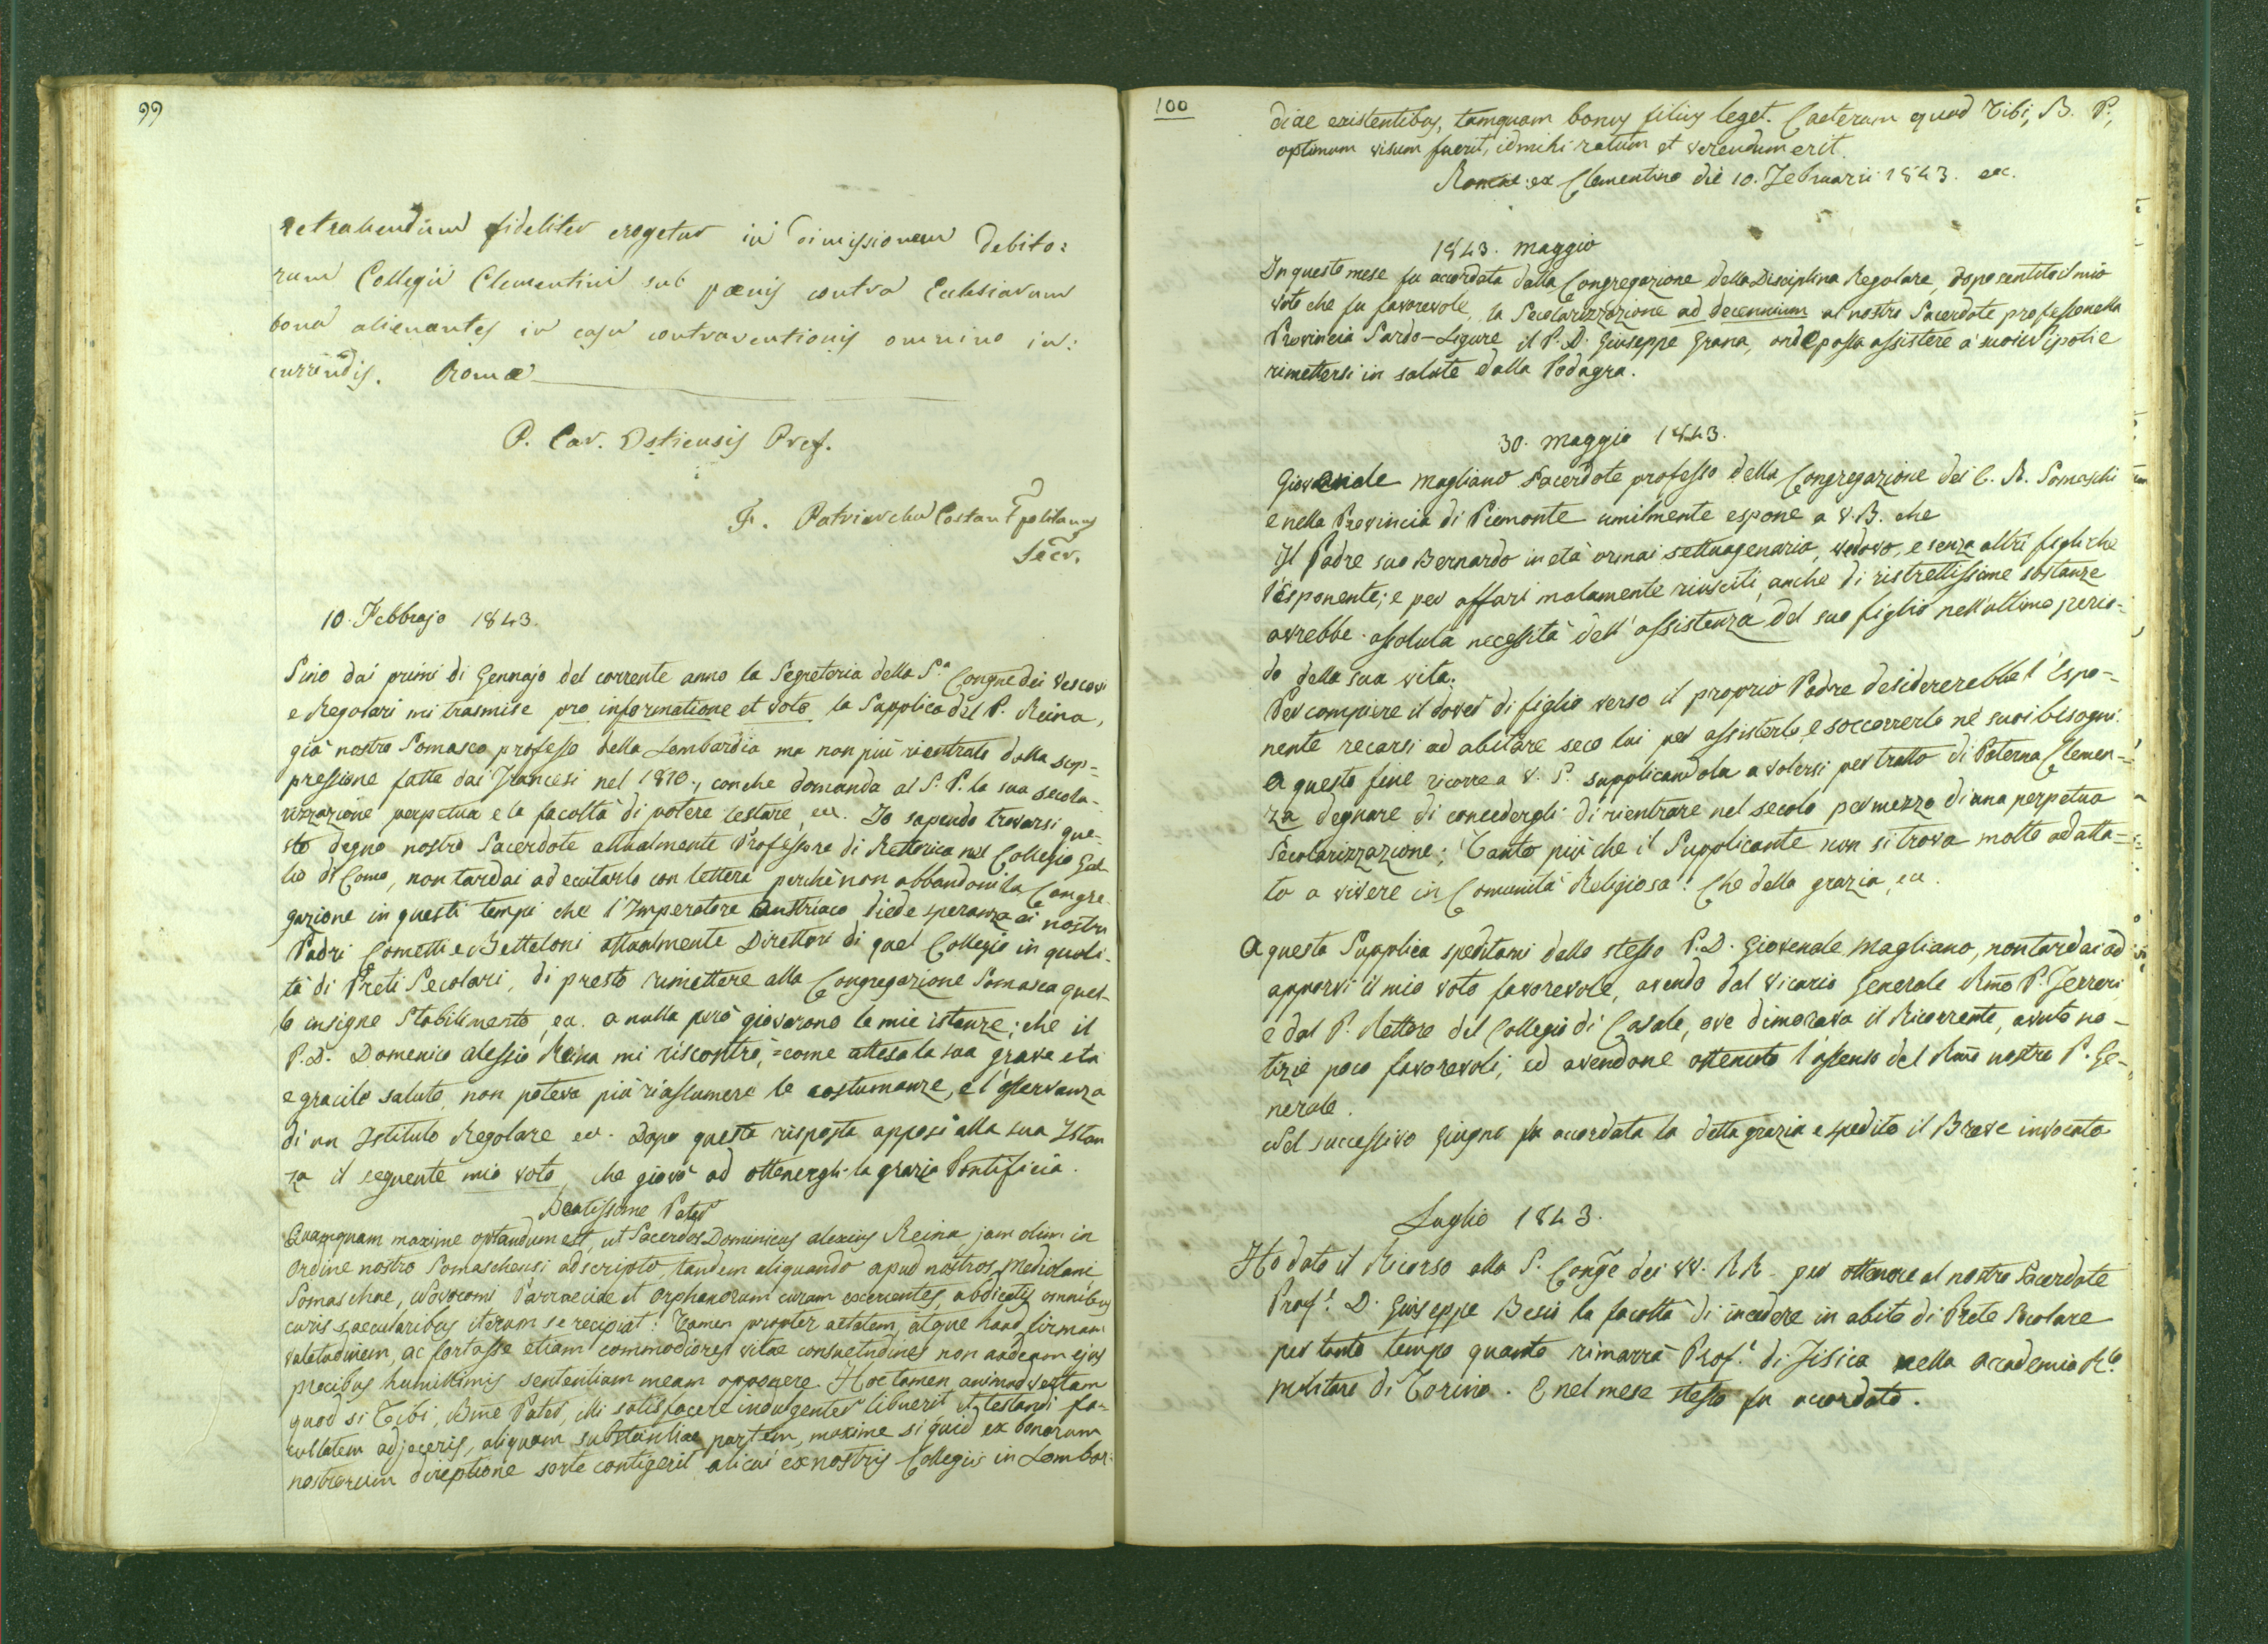 99
retrahendum fideliter erogetur in dimissionem debito:
rum Collegii Clementini sub pœnis contra Ecclesiarum
bona alienantes in casu contraventionis omnino in:
currendis. Romæ
P. Car. Ostiensis Pref.
F. Patriarcha Costantpolitanus
Secr.
10. Febbrajo 1843.
Sino dai primi di Gennajo del corrente anno la Segreteria della S.a Congne dei Vescovi
e Regolari mi trasmise pro informatione et voto la Supplica del P. Reina,
già nostro Somasco professo della Lombardia ma non più rientrato dalla sop=
pressione fatta dai Francesi nel 1810., con che domanda al S. P. la sua secola-
rizzazione perpetua e la facoltà di potere testare, ec. Io sapendo trovarsi que-
sto degno nostro Sacerdote attualmente Professore di Rettorica nel Collegio Gal
lio di Como, non tardai ad eccitarlo con lettera perchè non abbandoni la Congre-
gazione in questi tempi che l'Imperatore Austriaco diede speranza ai nostri
Padri Cometti e Betteloni attualmente Direttori di quel Collegio in quali-
tà di Preti Secolari, di presto rimettere alla Congregazione Somasca quel-
lo insigne Stabilimento, ec. a nulla però giovarono le mie istanze; che il
P. D. Domenico Alessio Reina mi riscontrò, =come attesa la sua grave età
e gracile salute, non poteva più riassumere le costumanze, e l'osservanza
di un Istituto Regolare ec. Dopo questa risposta apposi alla sua Istan
za il seguente mio voto, che giovò ad ottenergli la grazia Pontificia.
Beatissime Pater
Quamquam maxime optandum est, ut Sacerdos Dominicus Alexius Reina, jam olim in
Ordine nostro Somaschensi adscripto, tandem aliquando apud nostros Mediolani
Somaschae, Novocomi Parraeciae et Orphanorum curam exercentes, abdicatis omnibus
curis saecularibus iterum se recipiat: Tamen propter aetatem, atque haud firmam
valetudinem, ac fortasse etiam commodiores vitae consuetudines non audeam ejus
precibus humillimis sententiam meam opponere. Hoc tamen animadvertam
quod si Tibi, Bme Pater, illi satisfacere indulgenter libuerit et testandi fa=
cultatem adjeceris, aliquam substantiae partem, maxime si quid ex bonorum
nostrorum direptione sorte contigerit alicui ex nostris Collegiis in Lombar:
100
diae existentibus, tamquam bonus filius leget. Caeterum quod Tibi, B. P.,
optimum visum fuerit, id mihi ratum et verendum erit.
Romae ex Clementino die 10. Februarii 1843. ec.
1843. Maggio
In questo mese fu accordata dalla Congregazione della Disciplina Regolare, dopo sentito il mio
voto che fu favorevole, la Secolarizzazione ad decennium al nostro Sacerdote professo nella
Provincia Sardo-Ligure il P. D. Giuseppe Grana, onde possa assistere a' suoi Nipoti e
rimettersi in salute dalla Podagra.
30. Maggio 1843.
Giovenale Magliano Sacerdote professo della Congregazione dei C. R. Somaschi
e nella Provincia di Piemonte umilmente espone a V. B. che
Il Padre suo Bernardo in età ormai settuagenaria, vedovo, e senza altri figli che
l'esponente; e per affari malamente riusciti, anche di ristrettissime sostanze
avrebbe assoluta necessità dell'assistenza del suo figlio nell'ultimo perio-
do della sua vita.
Per compiere il dover di figlio verso il proprio Padre desidererebbe l'Espo-
nente recarsi ad abitare seco lui per assisterlo, e soccorrerlo ne' suoi bisogni.
A questo fine ricorre a V. S. supplicandola a volersi per tratto di Paterna Clemen-
za degnare di concedergli di rientrare nel secolo per mezzo di una perpetua
Secolarizzazione; Tanto più che il Supplicante non si trova molto adatta=
to a vivere in Comunità Religiosa: Che della grazia, ec.
A questa Supplica speditami dallo stesso P. D. Giovenale Magliano, non tardai ad
apporvi il mio voto favorevole, avendo dal Vicario Generale Rmo P. Ferreri,
e dal P. Rettore del Collegio di Casale, ove dimorava il Ricorrente, avuto no-
tizie poco favorevoli; ed avendone ottenuto l'assenso del Rmo nostro P. Ge-
nerale.
Nel successivo Giugno fu accordata la detta grazia e spedito il Breve invocato
Luglio 1843.
Ho dato il Ricorso alla S. Conge dei VV. RR. per ottenere al nostro Sacerdote
Prof.e D. Giuseppe Besio la facoltà di incedere in abito di Prete Secolare
per tanto tempo quanto rimarrà Prof.e di Fisica nella Accademia R.le
militare di Torino. E nel mese stesso fu accordato.